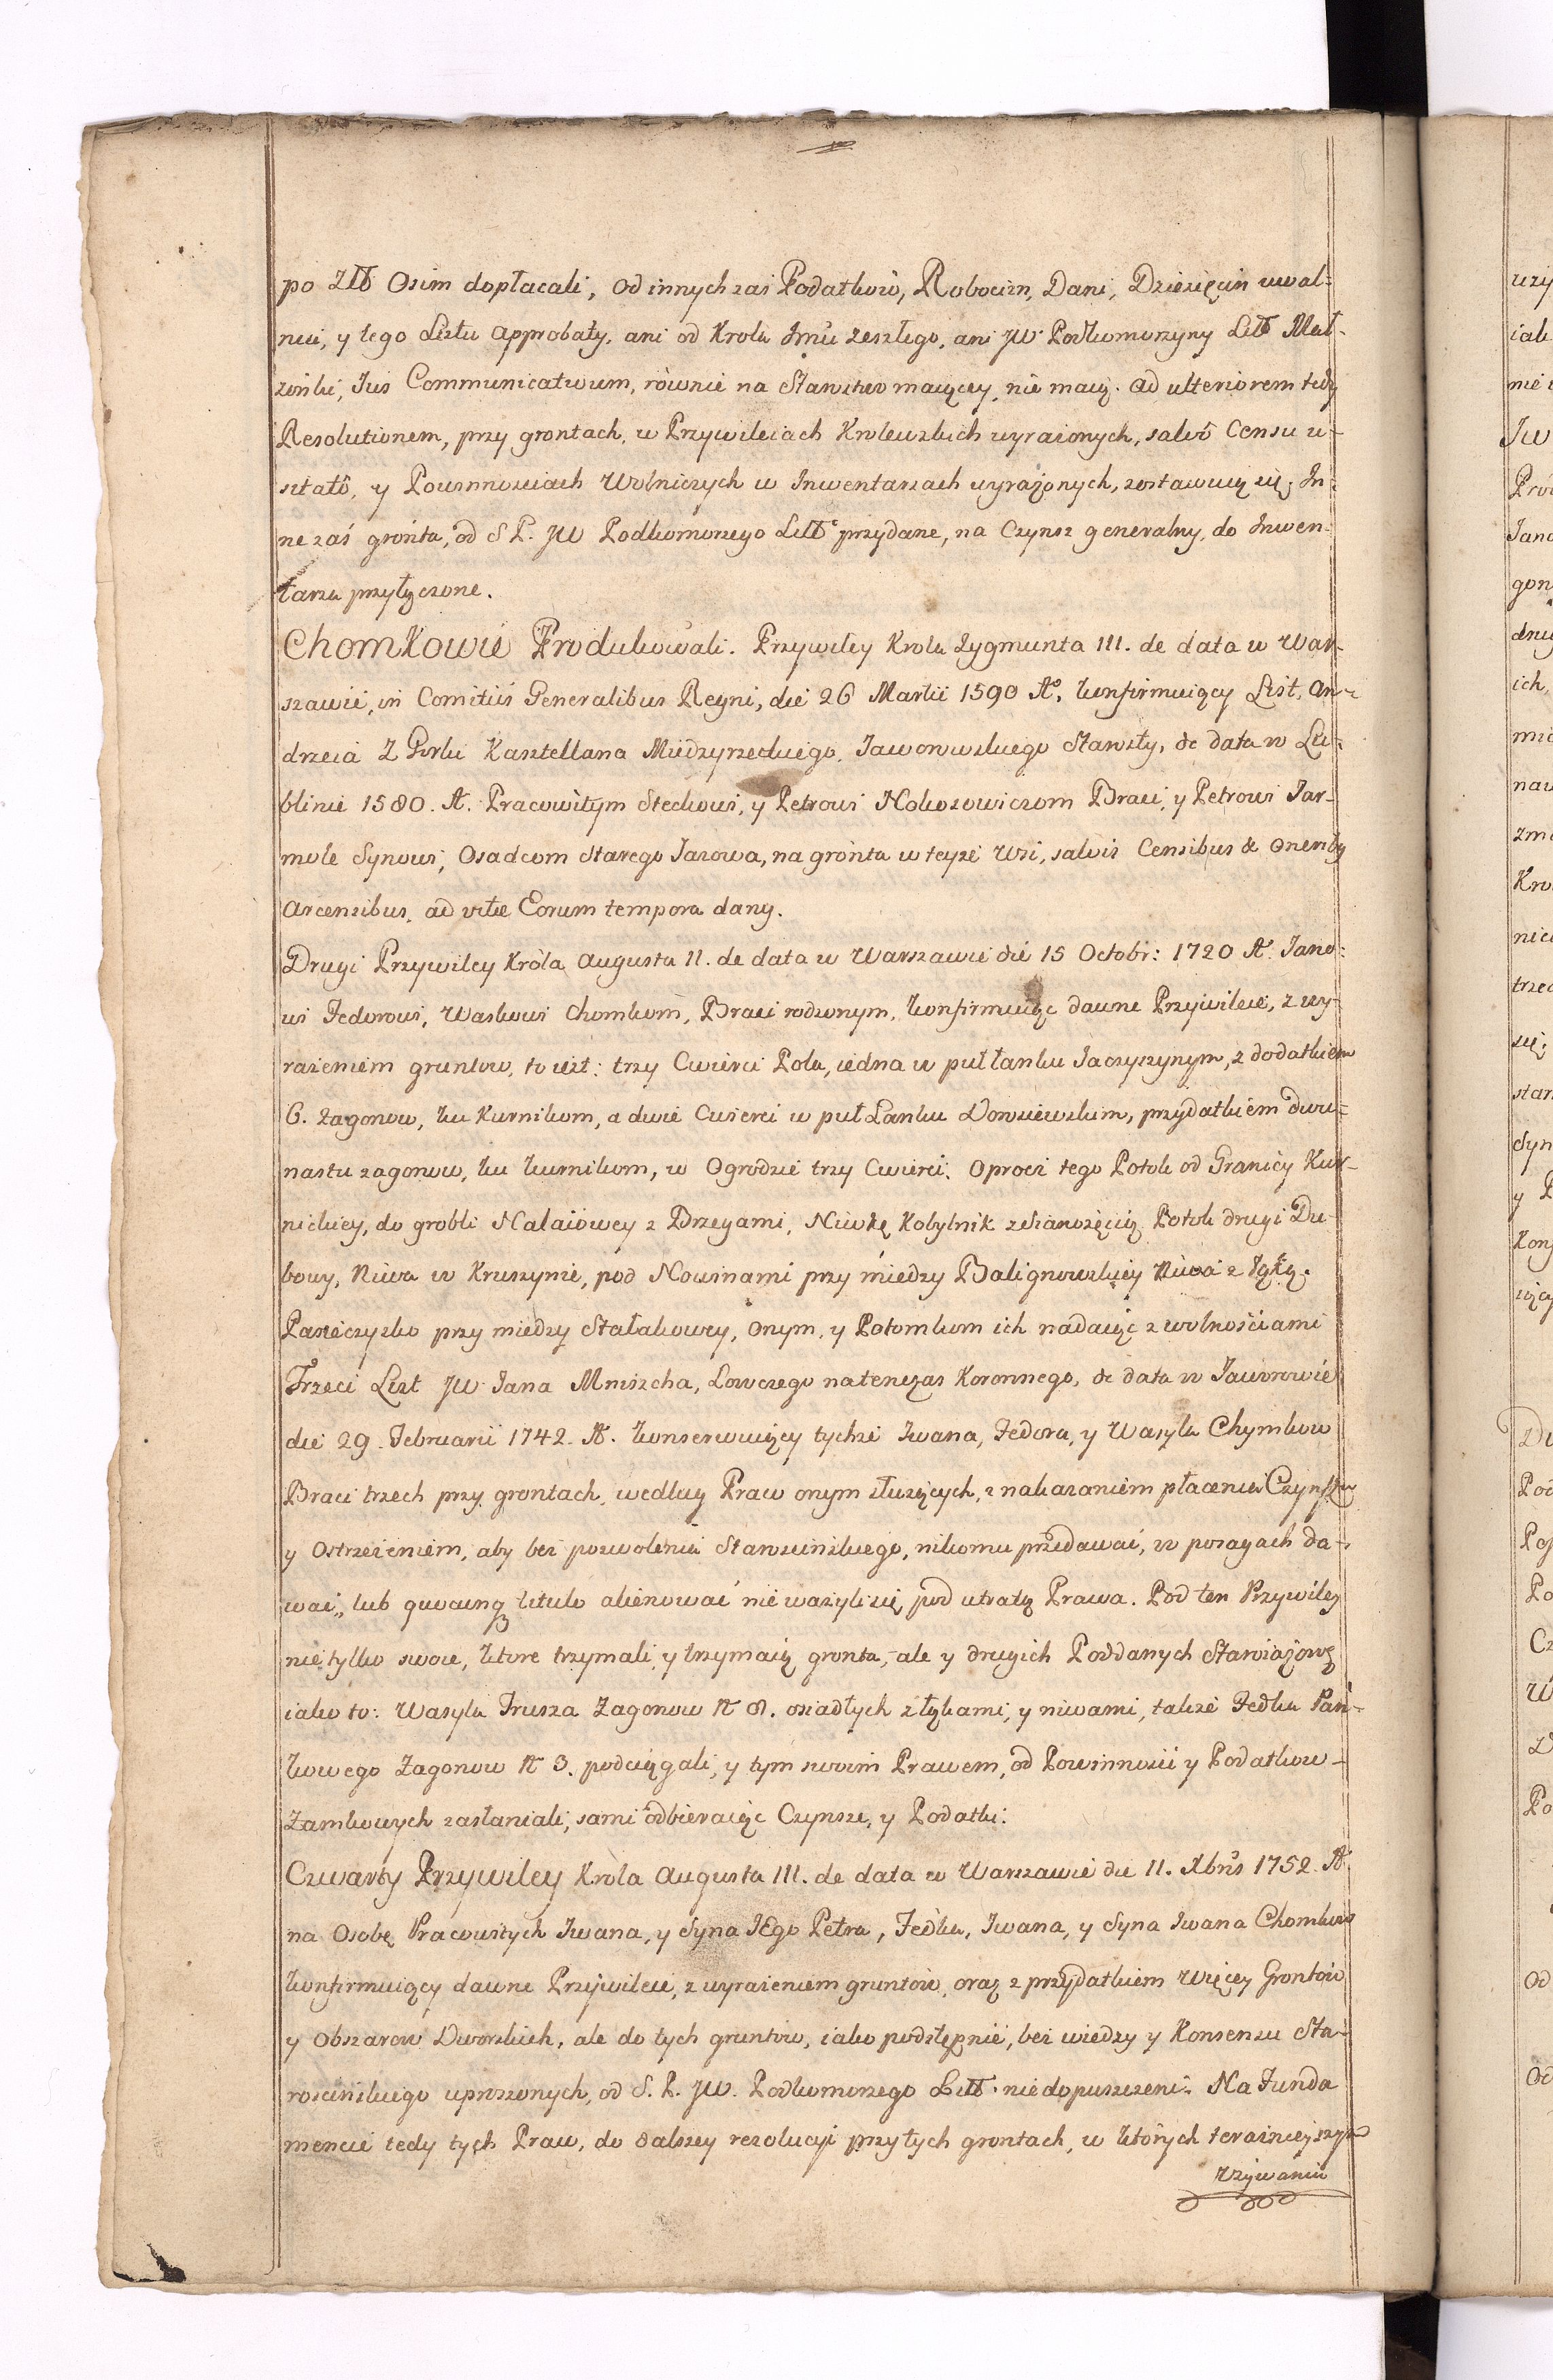 po Złł Osim dopłacali, od innych zaś Podatków, Robocizn, Dani, Dziesięcin uwal-
nia, y tego Listu approbaty, ani od Krola Jmci zeszłego, ani JW Podkomorzyny Litt Mał-
żonki, Jus Communicativum, rownie na Starostwo maiącey, nie maią. ad ulteriorem tedy
Resolutionem, przy grontach, w Przywileiach Krolewskich wyrażonych, salvo Censu u-
ziato, y Powinnosciach Wolniczych w Inwentarzach wyrażonych, zostawuią się; In-
ne zaś gronta, od S P. JW Podkomorzego Litt przydane, na Czynsz generalny, do Inwen-
tarza przyłączone.
Chomkowie Produkowali. Przywiley Krola Zygmunta III. de data w War-
szawie, in Comitiis Generalibus Regni, die 26 Martii 1590 A°, konfirmuiący List, An-
drzeia Z Gorki Kasztellana Miedzyrzeckiego, Jaworowskiego Starosty, de data w Lu-
blinie 1580. A. Pracowitym Steckowi, y Petrowi Nokozowiczom Braci, y Petrowi Jar-
mole Synowi, Osadcom Starego Jazowa, na gronta w teyże wsi, salvis Censibus & onerib9
Arcensibus, ad vitæ Eorum tempora dany.
Drugi Przywiley Króla Augusta II. de data w Warszawie die 15 Octobr: 1720 A° Jano-
wi Fedorowi, Waskowi Chomkom, Braci rodzonym, konfirmuiąc dawne Przywileie, z wy-
rażeniem gruntow, to iest: trzy Cwierci Pola, iedna w puł łanku Jaczyszynym, z dodatkiem
6. Zagonow, ku Kurnikom, a dwie Cwierci w puł Łanku Dorosiewskim, przydatkiem dwu-
nastu zagonow, ku kurnikom, w Ogrodzie trzy Cwierci. Oprocz tego Potok od Granicy Kur-
nickiey, do grobli Nalaiowey z Brzegami, Niwkę Kobylnik z Sianożęcią Potok drugi Du-
bowy, Niwa w Kruszynie, pod Nowinami przy miedzy Balignowskiey Niwa z łąką.
Pasieczysko przy miedzy Stałakowey, onym, y Potomkom ich nadaiąc z wolnościami
Trzeci List JW Jana Mniszcha, Łowczego natenczas Koronnego, de data w Jaworowie
die 29. Februarii 1742. A°. konserwuiący tychże Iwana, Fedora, y Wasyla Chymkow
Braci trzech przy grontach, według Praw onym służących, z nakazaniem płacenia Czynszu
y Ostrzeżeniem, aby bez pozwolenia Starościnskiego, nikomu przedawać, w posagach da-
wać, lub quocunq3 titulo alienować nie ważyli się, pod utratą Prawa. Pod ten Przywiley
nie tylko swoie, ktore trzymali, y trzymaią gronta, ale y drugich Poddanych Starojazows
iako to: Wasyla Trusza Zagonow N 8. osiadłych z łąkami, y niwami, także Fedka Pań-
kowego Zagonow N 3. podciągali, y tym swoim Prawem, od Powinnosci y Podatkow
Zamkowych zasłaniali, sami odbieraiąc Czynsze, y Podatki.
Czwarty Przywiley Króla Augusta III. de data w Warszawie die 11. Xbris 1752. A°
na Osobę Pracowitych Iwana, y Syna JEgo Petra, Fedka, Iwana, y Syna Iwana Chomkow
konfirmuiący dawne Przywileie, z wyrażeniem gruntów, oraz z przydatkiem więcey Grontów
y Obszarow Dworskich, ale do tych gruntow, iako podstępnie, bez wiedzy y Konsensu Sta-
rościnskiego uproszonych, od S. P. JW. Podkomorzego Litt. niedopuszczeni. Na Funda
mencie tedy tych Praw, do dalszey rezolucyi przy tych grontach, w których teraźnieyszym
Używaniu